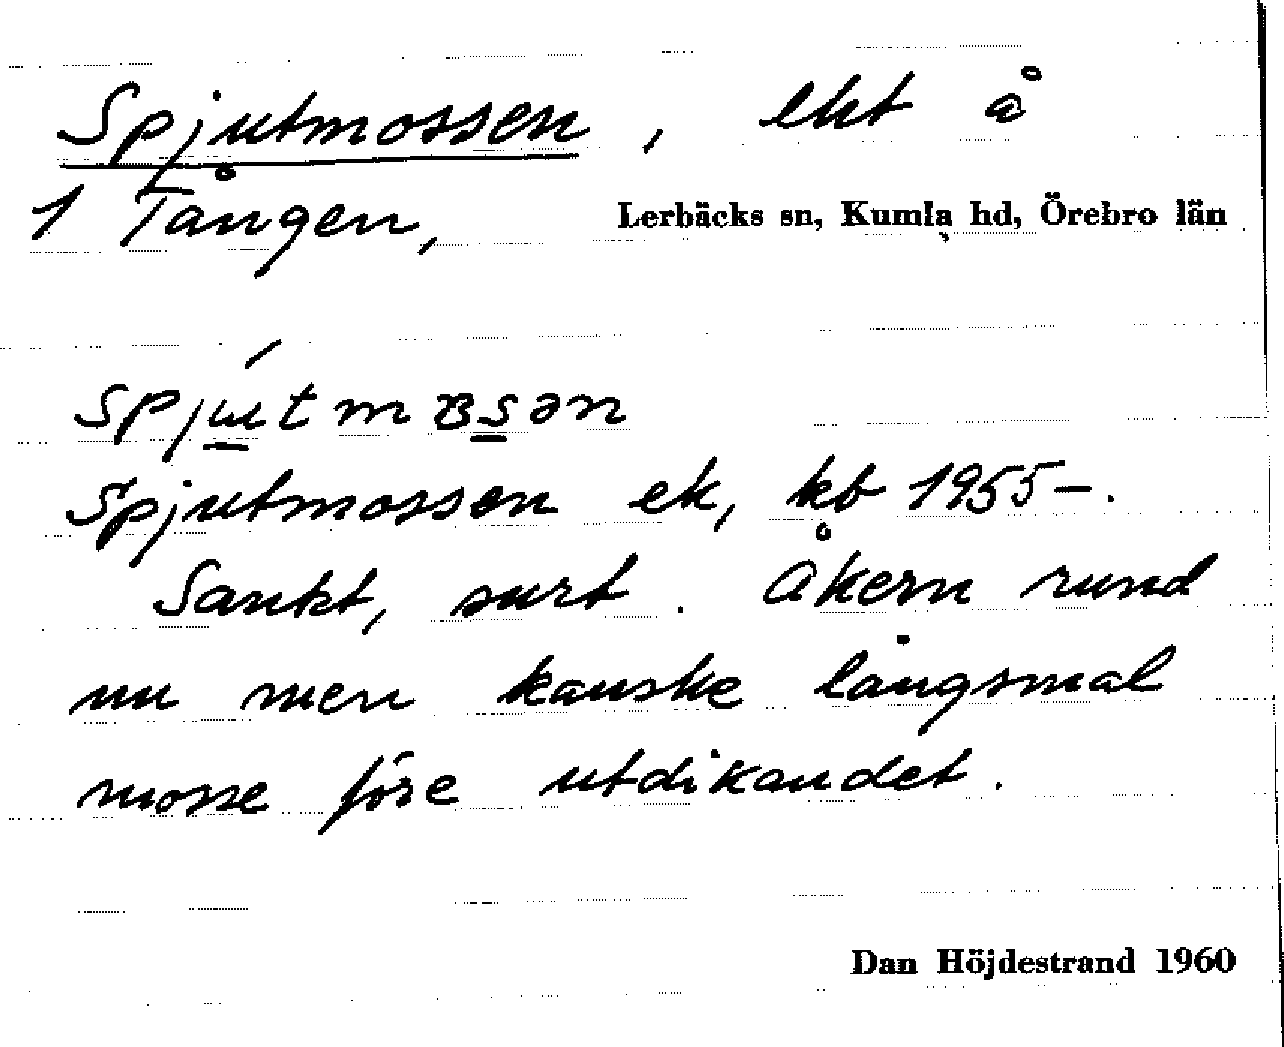 Spjutmossen, ekt å
1 Tången, Lerbäcks sn, Kumla hd, Örebro län
Spjutmossen ek, kb 1955–.
Sankt, surt. Åkern rund
nu men kanske långsmal
mosse före utdikandet.
Dan Höjdestrand 1960